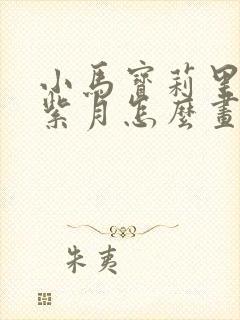 小馬寶莉里
紫月怎麼畫
朱夷